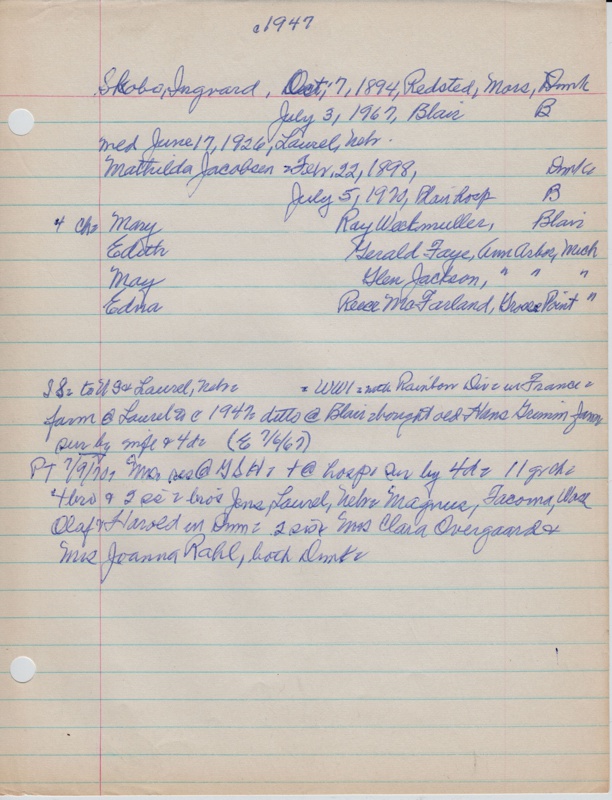 c1947
Skobo, Ingvard, Oct, 7, 1894, Redsted, Mors, Dmk
July 3, 1967, Blair B
med June 17, 1926, Laurel, Nebr.
Mathilda Jacobsen = Febr. 22, 1898, Dmk
July 5, 1970, Blair hosp B
4 ch = Mary Ray Weekmuller, Blair
Edith Gerald Faye, Ann Arbor, Mich
May Glen Jackson, " " "
Edna Reece McFarland, Grosse Point "
IS = to US & Laurel, Nebr = WW1 = with Rainbow Div = in France =
farm @ Laurel to c 1947 = ditto @ Blair = bought old Hans Grimm farm
sur by wife & 4d = (E 7/6/67)
PT 7/9/70 = Mrs res @ GSH = + @ hosp = sur by 4d = 11 grch =
4 bro & 2 si = bros Jens, Laurel, Nebr = Magnus, Tacoma, Wash
Olaf & Harold in Dmk = 2 sis = Mrs Clara Overgaard &
Mrs Joanna Rahl, both Dmk =